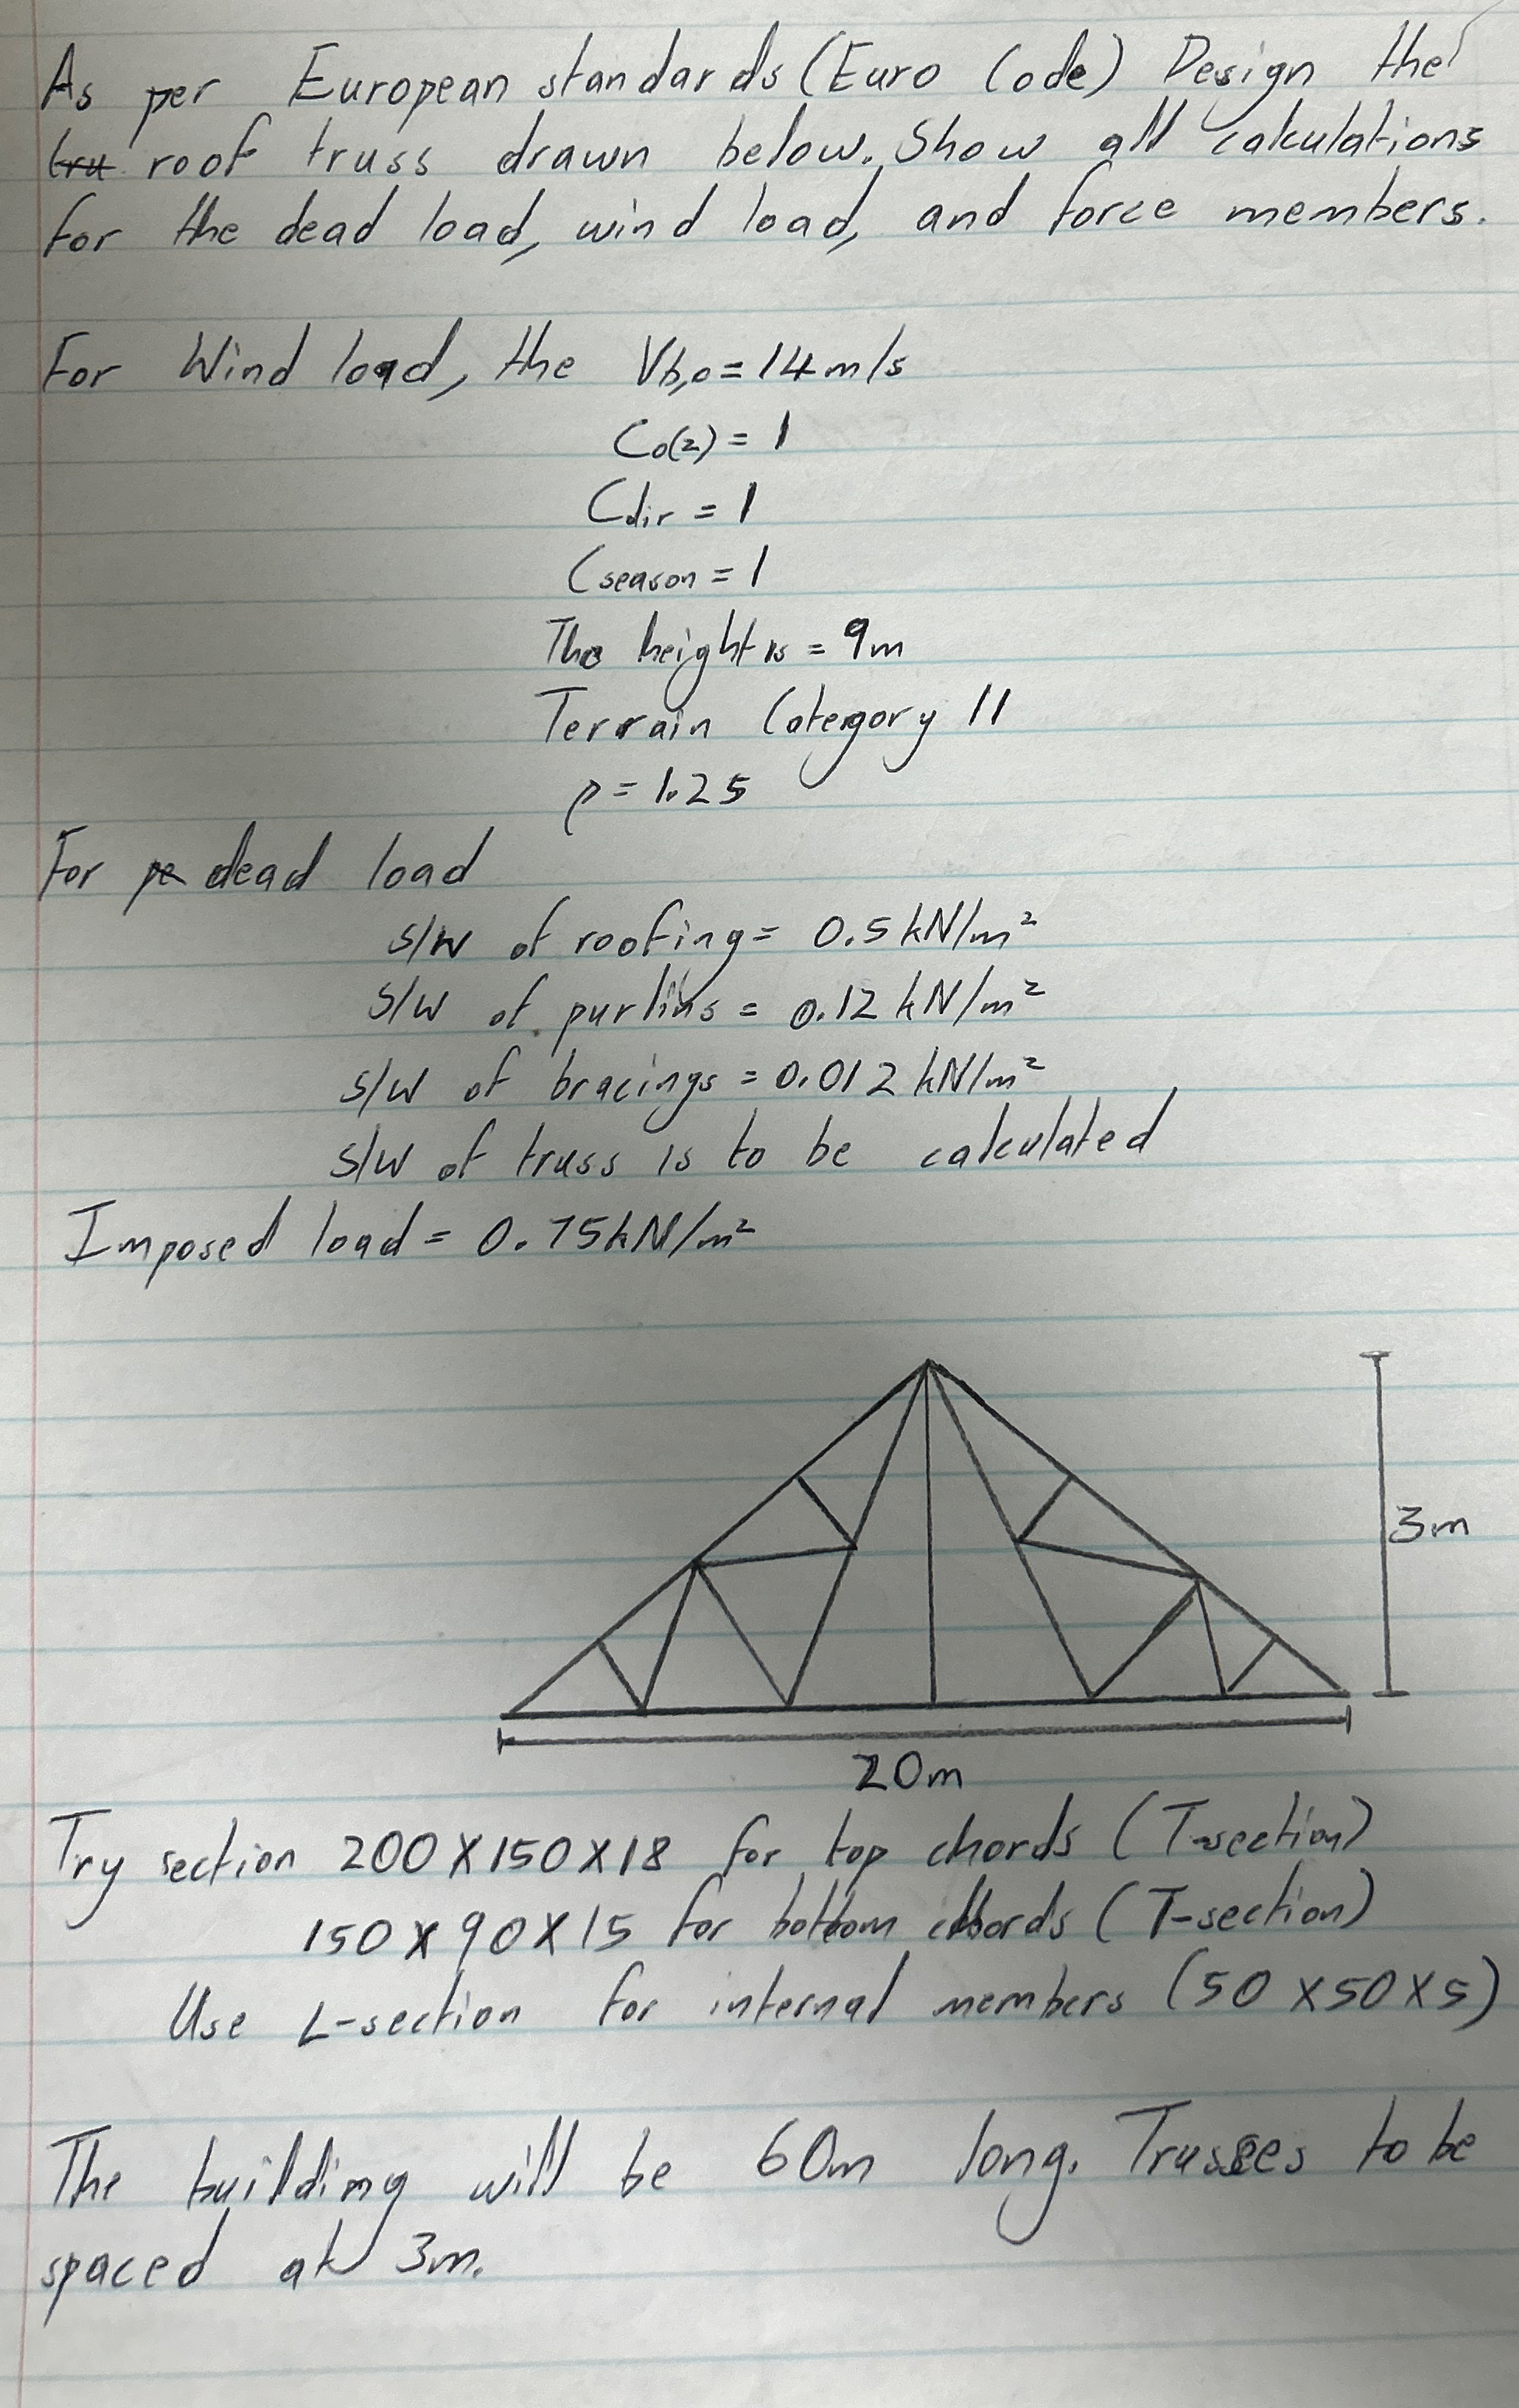 As per European standards (Euro Code) Design the
tru roof truss drawn below. Show all calculations
for the dead load, wind load, and force members.
For Wind load, the Vb,o = 14 m/s
Co(z) = 1
Cdir = 1
Cseason = 1
The height is = 9m
Terrain Category II
ρ = 1.25
For pe dead load
s/w of roofing = 0.5 kN/m²
s/w of purlins = 0.12 kN/m²
s/w of bracings = 0.012 kN/m²
s/w of truss is to be calculated
Imposed load = 0.75kN/m²
3m
20m
Try section 200 x 150 x 18 for top chords (T-section)
150 x 90 x 15 for bottom chords (T-section)
Use L-section for internal members (50 x 50 x 5)
The building will be 60m long. Trusses to be
spaced at 3m.